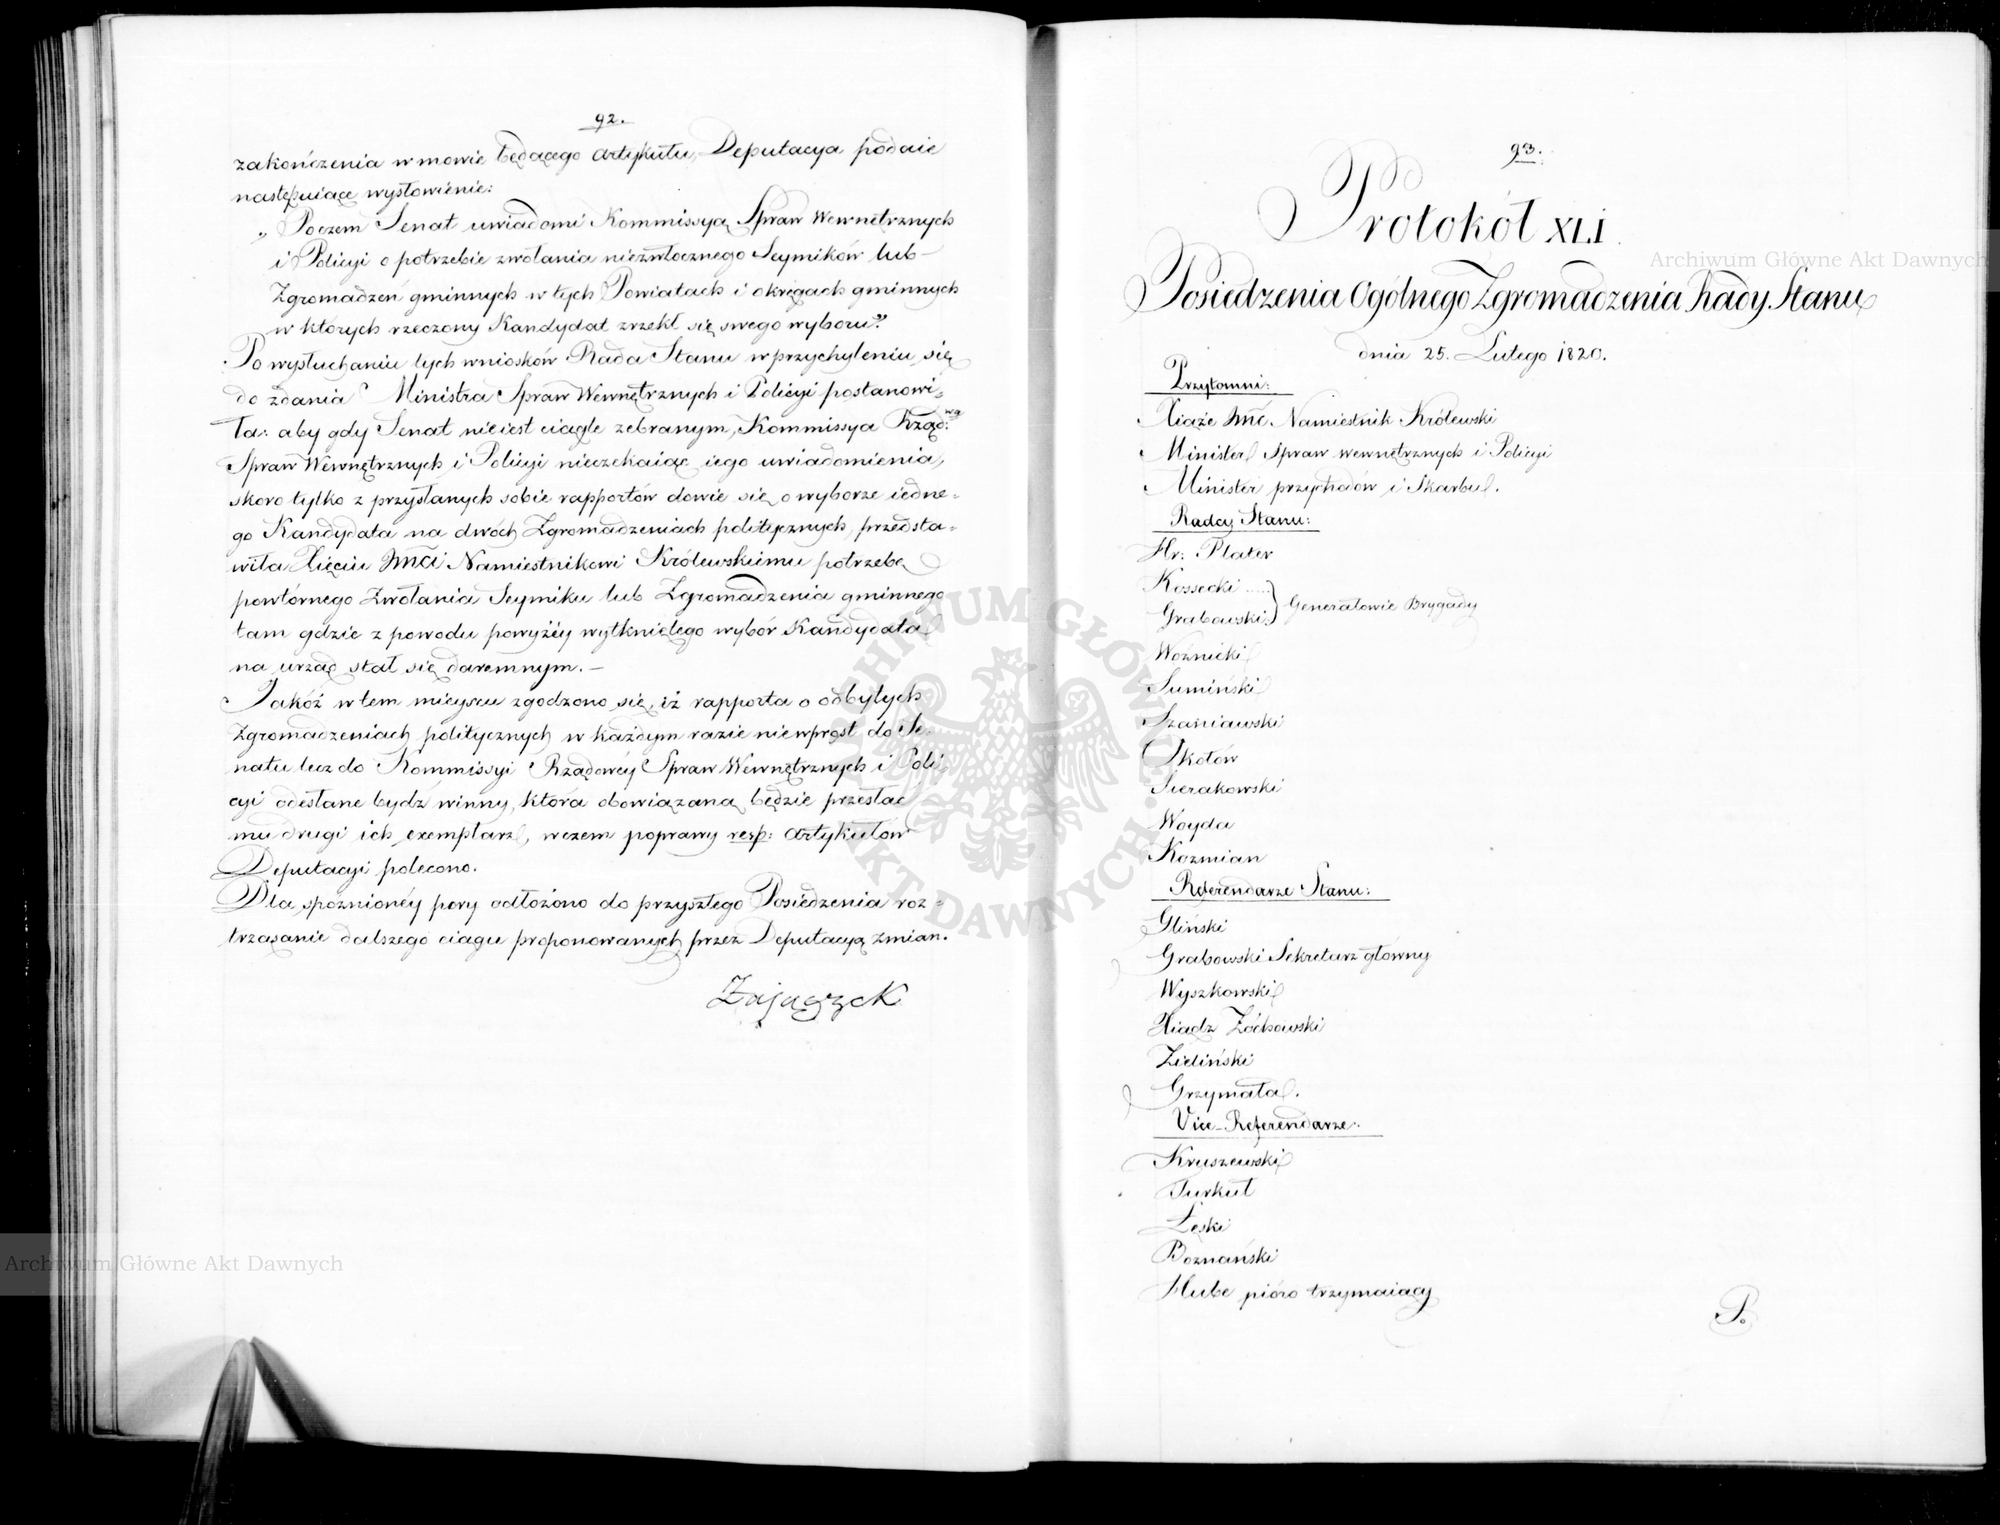 92.
zakończenia w mowie będącego artykułu, Deputacya podaie
następuiące wysłowienie:
„ Poczem Senat uwiadomi Kommissyą Spraw Wewnętrznych
i Policyi o potrzebie zwołania niezwłocznego Seymików lub
Zgromadzeń gminnych w tych Powiatach i okręgach gminnych
w których rzeczony Kandydat zrzekł się swego wyboru."
Po wysłuchaniu tych wniosków Rada Stanu w przychyleniu się
do zdania Ministra Spraw Wewnętrznych i Policyi postanowi-
ła: aby gdy Senat nieiest ciągle zebranym, Kommissya Rząd:wa
Spraw Wewnętrznych i Policyi nieczekaiąc iego uwiadomienia,
skoro tylko z przysłanych sobie rapportów dowie się o wyborze iedne-
go Kandydata na dwóch Zgromadzeniach politycznych, przedsta-
wiła Xięciu Jmci Namiestnikowi Królewskiemu potrzebę
powtórnego Zwołania Seymiku lub Zgromadzenia gminnego
tam gdzie z powodu powyżéy wytkniętego wybór Kandydata
na urząd stał się daremnym. —
Jakóż w tem mieyscu zgodzono się, iż rapporta o odbytych
Zgromadzeniach politycznych w każdym razie niewprost do Se-
natu lecz do Kommissyi Rządowéy Spraw Wewnętrznych i Poli-
cyi odesłane bydź winny, która obowiązaną będzie przesłać
mu drugi ich exemplarz, wczem poprawy resp: artykułów
Deputacyi polecono.
Dla spóźnionéy pory odłożono do przyszłego Posiedzenia roz-
trząsanie dalszego ciągu proponowanych przez Deputacyą zmian.
Zajączek
93.
Protokół XLI
Posiedzenia Ogólnego Zgromadzenia Rady Stanu
dnia 25. Lutego 1820.
Przytomni:
Xiąże Jmć Namiestnik Królewski
Minister Spraw wewnętrznych i Policyi
Minister przychodów i Skarbu.
Radcy Stanu:
Hr: Plater
Kossecki .....
Grabowski } Generałowie Brygady
Woźnicki
Sumiński
Szaniawski
Okołów
Sierakowski
Woyda
Kozmian
Referendarze Stanu:
Gliński
Grabowski Sekretarz główny
Wyszkowski
Xiądz Żóchowski
Zieliński
Grzymała.
Vice-Referendarze:
Kruszewski
Turkuł
Łęski
Boznański
Hube pióro trzymaiący
P.
Archiwum Główne Akt Dawnych
Archiwum Główne Akt Dawnych
ARCHIWUM GŁÓWNE AKT DAWNYCH